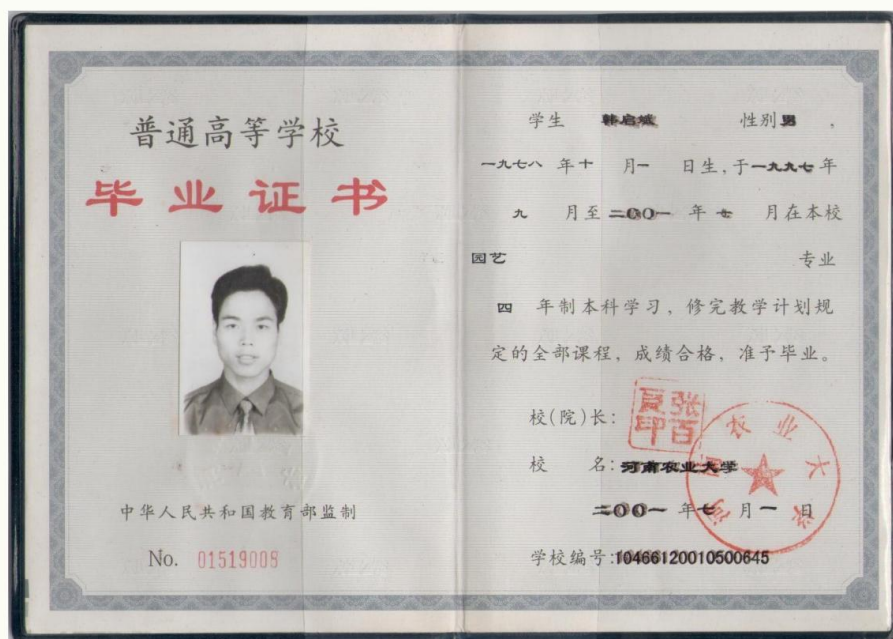 普通高等学校
毕业证书
中华人民共和国教育部监制
No. 01519008
学生 韩启城 性别 男 ,
一九七八 年 十 月 一 日生, 于 一九九七 年
九 月至 二〇〇一 年 七 月在本校
园艺 专业
四 年制本科学习, 修完教学计划规
定的全部课程, 成绩合格, 准予毕业。
校(院)长: 张百夏印
校 名: 河南农业大学
二〇〇一 年 七 月 一 日
学校编号:10466120010500645
河南农业大学